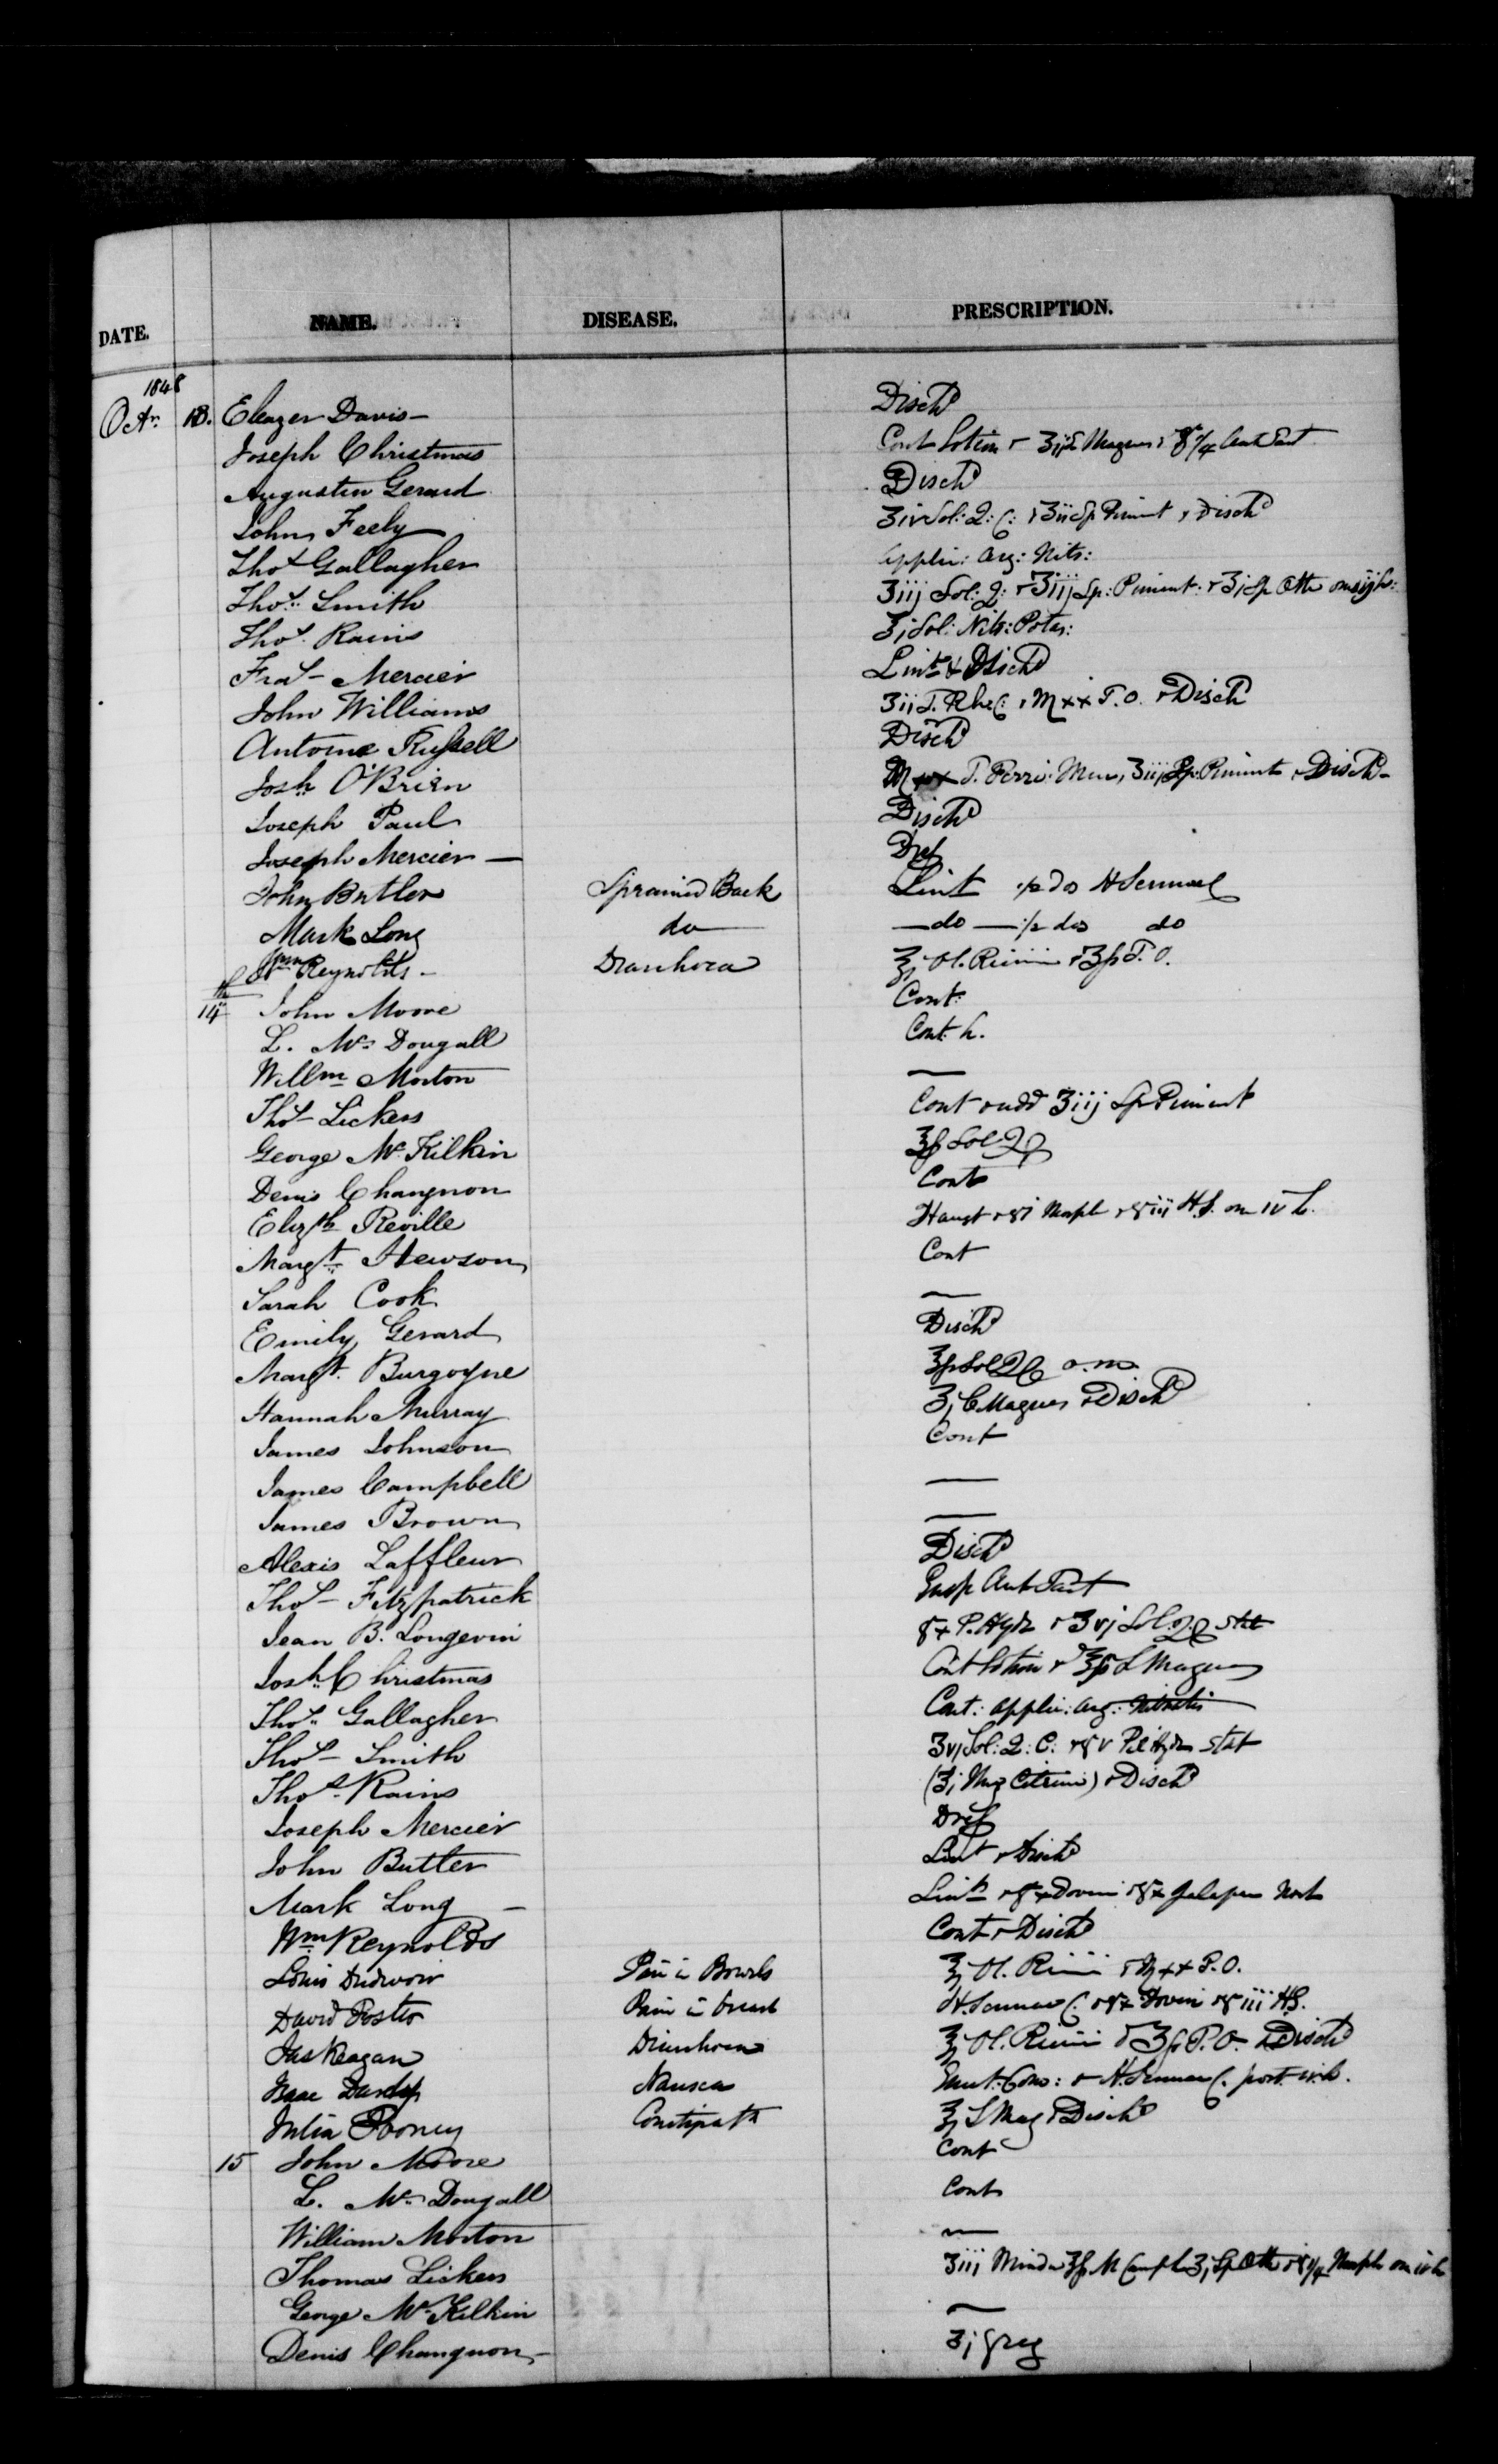 DATE. NAME. DISEASE. PRESCRIPTION.
1848
Octr. 13. Eleazer Davis — Dischd
Joseph Christmas Cont Lotion & ʒij S Magnes: & gr 1/4 Ant Tart
Augustin Gerard Dischd
John Feely ʒiv Sol: Q: C: & ʒii Sp Piment & Dischd
Thos Gallagher Applic: Arg: Nits:
Thos Smith ʒiij Sol: Q: & ʒiij Sp: Piment: & ʒj Sp Æth
Thos Rains ʒj Sol: Nits: Potas:
Fras — Mercier Lint & Dischd
John Williams ʒii T. Rhe C: & Mxx T.O. & Disch
Antoine Russell Dischd
Josh O'Brien T. Ferri: Mur, ʒiij Sp: Piment & Dischd —
Joseph Paul Dischd
Joseph Mercier —
John Butler Sprained Back Lint H Sennae C
Mark Long do — do — do
Wm Reynolds — Diarrhoea ℥j Ol. Ricini & ʒß T.O.
14th John Moore Cont:
L. Mc Dougall Cont. L.
Willm Morton —
Thos Lickers Cont & add ʒiij Sp Piment
George Mc Kilkin ℥ß Sol Q C
Denis Changnon Cont
Elizth Reville Haust & gr i Morph & ℥iii H.S. om iv h.
Margt Hewson Cont
Sarah Cook —
Emily Gerard Dischd
Margt. Burgoyne ℥ß Sol Q C o.m.
Hannah Murray ʒj C Magnes & Dischd
James Johnson Cont
James Campbell —
James Brown —
Alexis Laffleur Dischd
Thos — Fitzpatrick Ant Tart
Jean B. Longevin gr x P. Hydr & ʒvj Sol. Q C stat
Josh Christmas Cont lotion & ℥ß S Magnes
Thos Gallagher Cont: applic: arg: Nitratis
Thos — Smith ʒvj Sol: Q: C: & gr v Pil Hydr stat
Thos Rains (ʒj Ung Citrini) & Dischd
Joseph Mercier
John Butler Lint & Dischd
Mark Long — Lint & gr x Doveri & gr x Jalapae Noct
Wm Reynolds Cont & Dischd
Louis Pain in Bowels ℥j Ol. Ricini & Mxx T.O.
David Foster Pain in breast H. Sennae C. & gr x Doveri & ℥iii HS.
Jas Keagan Diarrhoea ℥j Ol. Ricini & ʒß T.O. & Dischd
Isaac Dunlop Nausea Emet: Com: & H. Sennae C. post iv h.
Julia Rooney Constipatn ℥j S Mag & Dischd
15 John Moore Cont
L. Mc Dougall Cont
William Morton —
Thomas Lickers ʒiij Minder ℥ß M Camph ʒj Sp Æth & gr 1/4 Morph om iv h
George Mc Kilkin —
Denis Changnon — ʒj Greg